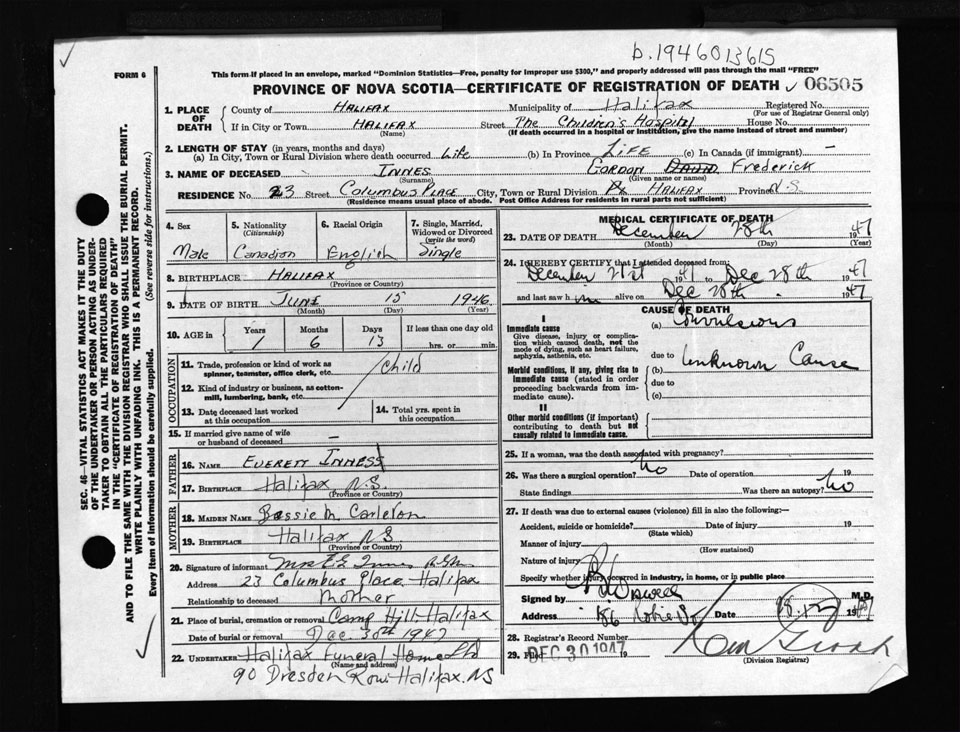 b.1946013615
FORM 6
This form if placed in an envelope, marked "Dominion Statistics—Free, penalty for improper use $300," and properly addressed will pass through the mail "FREE"
PROVINCE OF NOVA SCOTIA—CERTIFICATE OF REGISTRATION OF DEATH ✓ 06505
1. PLACE OF DEATH
County of HALIFAX Municipality of Halifax Registered No.
(For use of Registrar General only)
If in City or Town HALIFAX Street The Children's Hospital House No.
(Name) (If death occurred in a hospital or institution, give the name instead of street and number)
2. LENGTH OF STAY (in years, months and days)
(a) In City, Town or Rural Division where death occurred Life (b) In Province LIFE (c) In Canada (if immigrant) —
3. NAME OF DECEASED INNES GORDON DAVID Frederick
(Surname) (Given name or names)
RESIDENCE No. 23 Street Columbus PLACE City, Town or Rural Division HALIFAX Province N.S.
(Residence means usual place of abode. Post Office Address for residents in rural parts not sufficient)
4. Sex Male
5. Nationality (Citizenship) Canadian
6. Racial Origin English
7. Single, Married, Widowed or Divorced (write the word) Single
8. BIRTHPLACE HALIFAX
(Province or Country)
9. DATE OF BIRTH JUNE 15 1946
(Month) (Day) (Year)
10. AGE in Years Months Days If less than one day old
1 6 13 hrs. or min.
OCCUPATION
11. Trade, profession or kind of work as spinner, teamster, office clerk, etc. Child
12. Kind of industry or business, as cotton-mill, lumbering, bank, etc.
13. Date deceased last worked at this occupation
14. Total yrs. spent in this occupation
15. If married give name of wife or husband of deceased —
FATHER
16. NAME EVERETT INNESS
17. BIRTHPLACE Halifax N.S.
(Province or Country)
MOTHER
18. MAIDEN NAME Jessie M. Carleton
19. BIRTHPLACE Halifax N.S.
(Province or Country)
20. Signature of informant Mrs E Innes
Address 23 Columbus Place, Halifax
Relationship to deceased Mother
21. Place of burial, cremation or removal Camp Hill-Halifax
Date of burial or removal Dec. 30th 1947
22. UNDERTAKER Halifax Funeral Home Ltd
(Name and address)
90 Dresden Row-Halifax. NS
MEDICAL CERTIFICATE OF DEATH
23. DATE OF DEATH December 28th 1947
(Month) (Day) (Year)
24. I HEREBY CERTIFY that I attended deceased from:
December 21st 47 to Dec 28th 1947
and last saw him alive on Dec 28th. 1947
CAUSE OF DEATH
I
Immediate cause
Give disease, injury or complication which caused death, not the mode of dying, such as heart failure, asphyxia, asthenia, etc.
(a) Convulsions
due to
Morbid conditions, if any, giving rise to immediate cause (stated in order proceeding backwards from immediate cause).
(b) Unknown Cause
due to
(c)
II
Other morbid conditions (if important) contributing to death but not causally related to immediate cause.
25. If a woman, was the death associated with pregnancy?
26. Was there a surgical operation? No Date of operation 19
State findings Was there an autopsy? No
27. If death was due to external causes (violence) fill in also the following:—
Accident, suicide or homicide? Date of injury 19
(State which)
Manner of injury
(How sustained)
Nature of injury
Specify whether injury occurred in industry, in home, or in public place
Signed by M.D.
Address 186 Date 28.12 1947
28. Registrar's Record Number
29. Filed DEC 30 1947 19
(Division Registrar)
SEC. 46—VITAL STATISTICS ACT MAKES IT THE DUTY
OF THE UNDERTAKER OR PERSON ACTING AS UNDER-
TAKER TO OBTAIN ALL THE PARTICULARS REQUIRED
IN THE "CERTIFICATE OF REGISTRATION OF DEATH"
AND TO FILE THE SAME WITH THE DIVISION REGISTRAR WHO SHALL ISSUE THE BURIAL PERMIT.
WRITE PLAINLY WITH UNFADING INK. THIS IS A PERMANENT RECORD.
Every item of Information should be carefully supplied. (See reverse side for instructions.)